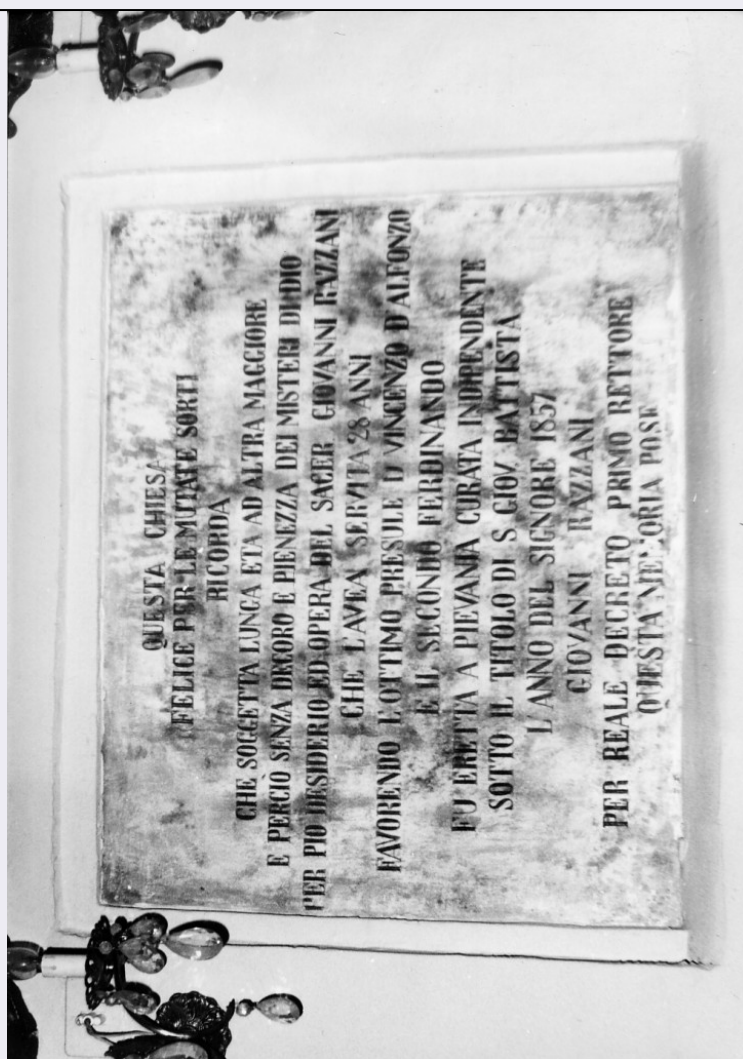 QUESTA CHIESA
FELICE PER LE MUTATE SORTI
RICORDA
CHE SOGGETTA LUNGA ETA AD ALTRA MAGGIORE
E PERCIÒ SENZA DECORO E PIENEZZA DEI MISTERI DI DIO
PER PIO DESIDERIO ED OPERA DEL SACER GIOVANNI RAZZANI
CHE L'AVEA SERVITA 28 ANNI
FAVORENDO L'OTTIMO PRESULE D VINCENZO D ALFONZO
E IL SECONDO FERDINANDO
FU ERETTA A PIEVANIA CURATA INDIPENDENTE
SOTTO IL TITOLO DI S GIOV BATTISTA
L'ANNO DEL SIGNORE 1857
GIOVANNI RAZZANI
PER REALE DECRETO PRIMO RETTORE
QUESTA MEMORIA POSE